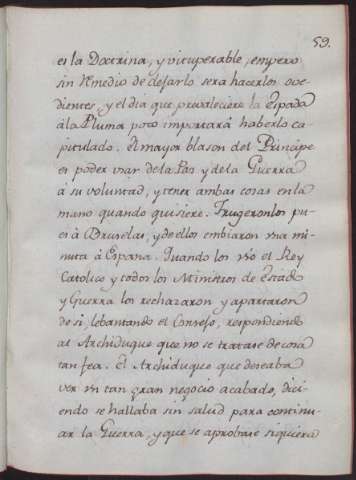 59.
es la Doctrina, y vituperable, empero
sin remedio de dejarlo sera hacerlos ove-
dientes, y el dia que prevaleciere la Espada
à la Pluma poco importarà haberlo ca-
pitulado. El mayor blason del Principe
es poder usar de la Paz y de la Guerra
à su voluntad, y tener ambas cosas en la
mano quando quisiere. Trugeronlos pu-
es à Bruselas, y de ellos embiaron una mi-
nuta à España. Quando los vio el Rey
Catolico y todos los Ministros de Estado
y Guerra los rechazaron y apartaron
de si, lebantando el Consejo, respondiendo
al Archiduque que no se tratase de cosa
tan fea. El Archiduque que deseaba
ver un tan gran negocio acabado, dici-
endo se hallaba sin salud para continu-
ar la Guerra, y que se aprobase siquiera